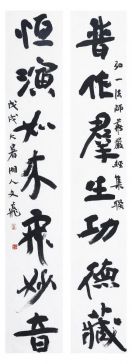 普作羣生功德藏
弘一法師華嚴經集聯
恒演如来寂妙音
戊戌大暑湘人文